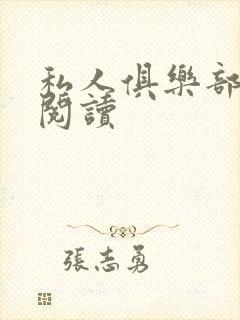 私人俱樂部
閱讀
張志勇